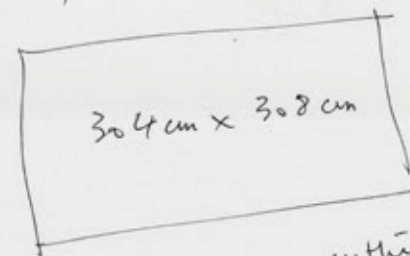 304 cm x 308 cm